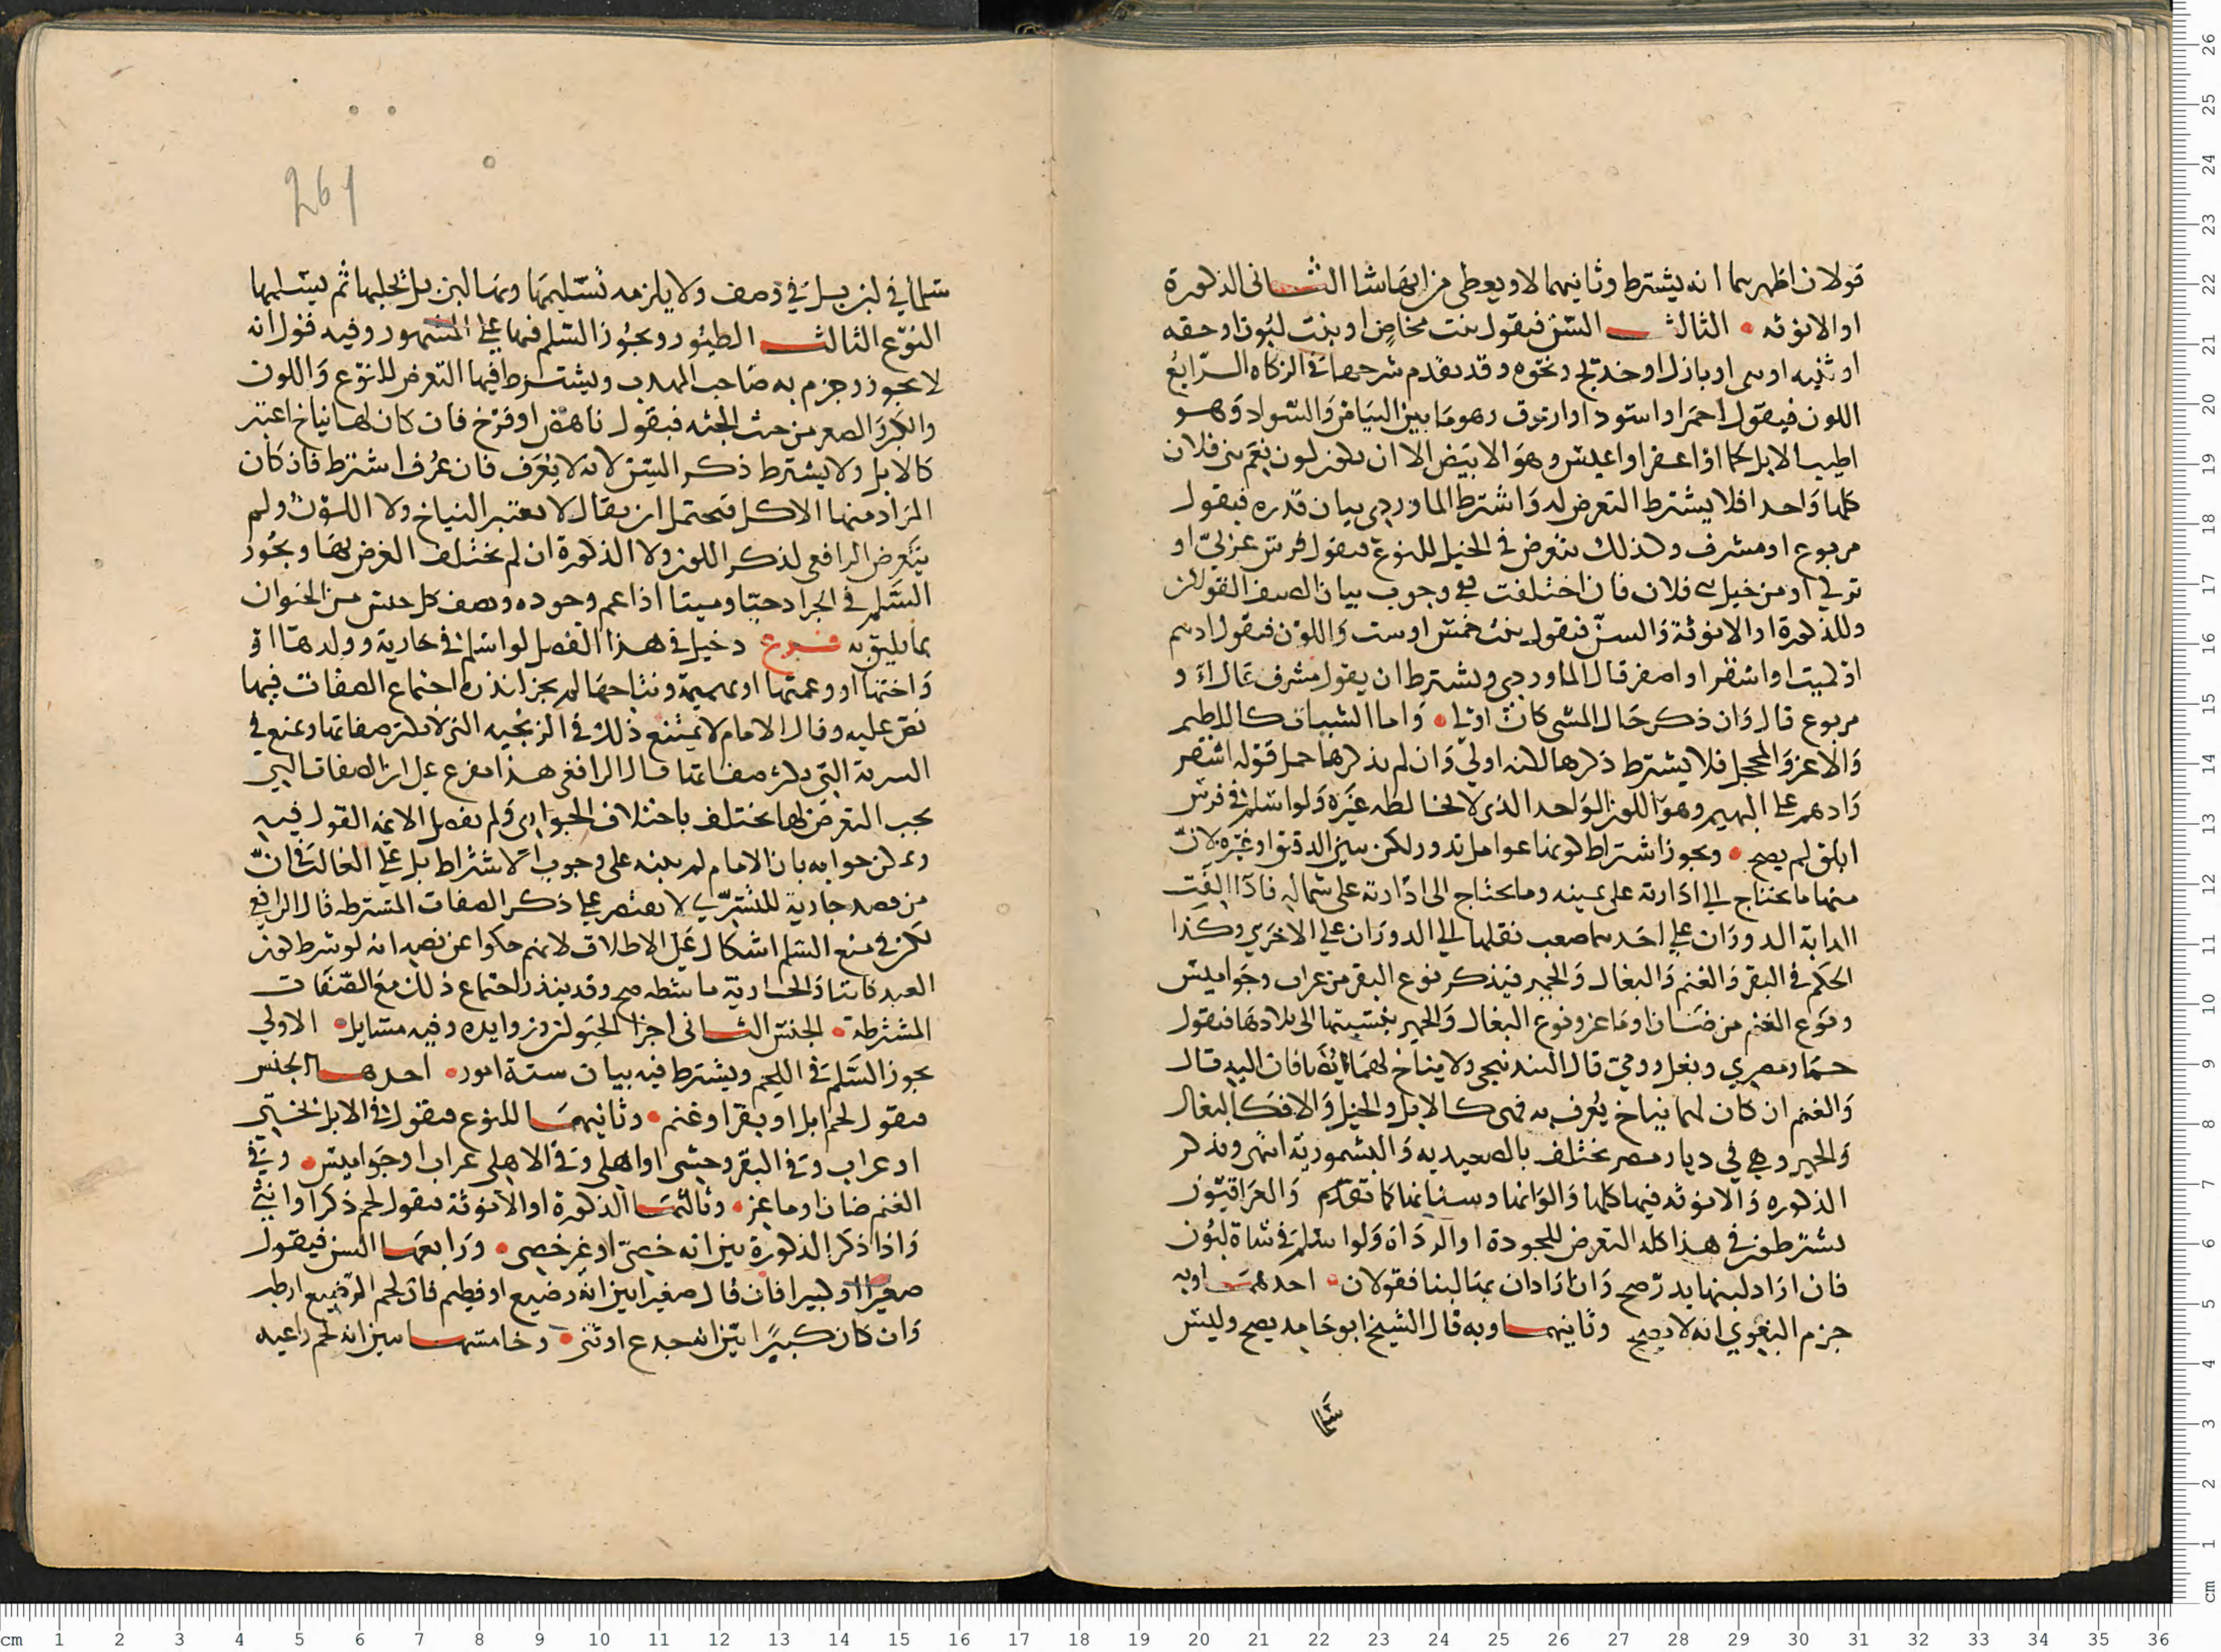 قولان اظهرهما انه يشترط وثانيهما لا ويعطى من ايهما شا الثاني الذكورة
او الانوثه • الثالث السن فيقول بنت مخاض او بنت لبون او حقه
او ثنيه او بازل او ونحوه وقد تقدم شرحها في الزكاه الرابع
اللون فيقول احمر او اسود او ازرق وهو ما بين البياض والسواد وهو
اطيب الابل لحما او اعفر او اعيس وهو الابيض الا ان يكون لون نعم بني فلان
كلها واحدا فلا يشترط التعرض له واشترط الماوردي بيان قدره فيقول
مربوع او مشرف وكذلك يتعرض في الخيل للنوع فيقول فرس عربي او
تركي او من خيل بني فلان فان اختلفت ففي وجوب بيان الصنف القولان
وللذكورة او الانوثة والسن فيقول بنت خمس او ست واللون فيقول ادهم
او كميت او اشقر او اصفر قال الماوردي ويشترط ان يقول مشرف عال او
مربوع قال وان ذكر حال المشي كان اولى • واما الشيات كاللطيم
والاغر والمحجل فلا يشترط ذكرها لكنه اولى وان لم يذكرها حمل قوله اشقر
وادهم على البهيم وهو اللون الواحد الذي لا يخالطه غيره ولو اسلم في فرس
ابلق لم يصح • ويجوز اشتراط كونها عوامل تدور لكن يبين الدقيق او غيره لان
منها ما يحتاج الى ادارته على يمينه وما يحتاج الى ادارته على شماله فاذا الفت
الدابة الدوران على احدهما صعب نقلها الى الدوران على الاخرى وكذا
الحكم في البقر والغنم والبغال والحمير فيذكر نوع البقر من عراب وجواميس
ونوع الغنم من ضان او ماعز ونوع البغال والحمير بنسبتها الى بلادها فيقول
حمار مصري وبغل رومي قال البندنيجي ولا نتاخ لهما فان اليه قال
والغنم ان كان لها نتاخ يعرف به فهي كالابل والخيل والا فكالبغال
والحمير وهي في ديار مصر تختلف بالصعيديه والبشمورية انتهى ويذكر
الذكوره والانوثه فيها كلها والوانها وسنانها كما تقدم والعراقيون
يشترطون في هذا كله التعرض للجودة او الرداة ولو اسلم في شاة لبون
فان اراد لبنها يدر صح وان اراد ان بها لبنا فقولان • احدهما وبه
جزم البغوي انه لا يصح وثانيهما وبه قال الشيخ ابو حامد يصح وليس
سلما
261
سلما في لبن بل في وصف ولا يلزمه تسليمها وبها لبن بل يحلبها ثم يسلمها
النوع الثالث الطيور ويجوز السلم فيها على المشهور وفيه قول انه
لا يجوز وجزم به صاحب المهذب ويشترط فيها التعرض للنوع واللون
والكبر والصغر من حيث الجثه فيقول ناهض او فرخ فان كان لها نتاخ اعتبر
كالابل ولا يشترط ذكر السن لانه لا يعرف فان عرف اشترط فان كان
المراد منها الاكل فيحتمل ان يقال لا يعتبر النتاخ ولا اللون ولم
يتعرض الرافعي لذكر اللون ولا الذكورة ان لم يختلف الغرض بها ويجوز
السلم في الجراد حيا وميتا اذا عم وجوده ويصف كل جنس من الحيوان
بما يليق به فرع دخيل في هذا الفصل لو اسلم في جارية وولدها او
واختها او وعمتها او بهيمة ونتاجها لم يجز لندرة اجتماع الصفات فيها
نص عليه وقال الامام لا يمتنع ذلك في الزنجيه التي لا تكثر صفاتها ويمنع في
السرية التي تكثر صفاتها قال الرافعي هذا مفرع على ان الصفات التي
يجب التعرض لها تختلف باختلاف الجواري ولم يفصل الايمة القول فيه
ويمكن جوابه بان الامام لم يبنه على وجوب الاشتراط بل على الغالب في ان
من قصد جارية للتسري لا يقتصر على ذكر الصفات المشترطه قال الرافعي
لكن في منع السلم اشكال على الاطلاق لانهم حكوا عن نصه انه لو شرط كون
العبد كاتبا والجارية ماشطه صح وقد يندر اجتماع ذلك مع الصفات
المشترطة • الجنس الثاني اجزا الحيوان وزوايده وفيه مسايل • الاولى
يجوز السلم في اللحم ويشترط فيه بيان ستة امور • احدها الجنس
فيقول لحم ابل او بقر او غنم • وثانيهما النوع فيقول في الابل بختي
او عراب وفي البقر وحشي او اهلي وفي الاهلي عراب او جواميس • وفي
الغنم ضان او ماعز • وثالثها الذكورة او الانوثة فيقول لحم ذكر او انثى
واذا ذكر الذكورة بين انه خصي او غير خصي • ورابعها السن فيقول
صغيرا او كبيرا فان قال صغيرا بين انه رضيع او فطيم فان لحم الرضيع ارطب
وان كان كبيرا بين انه جدع او ثني • وخامسها يبين انه لحم راعيه